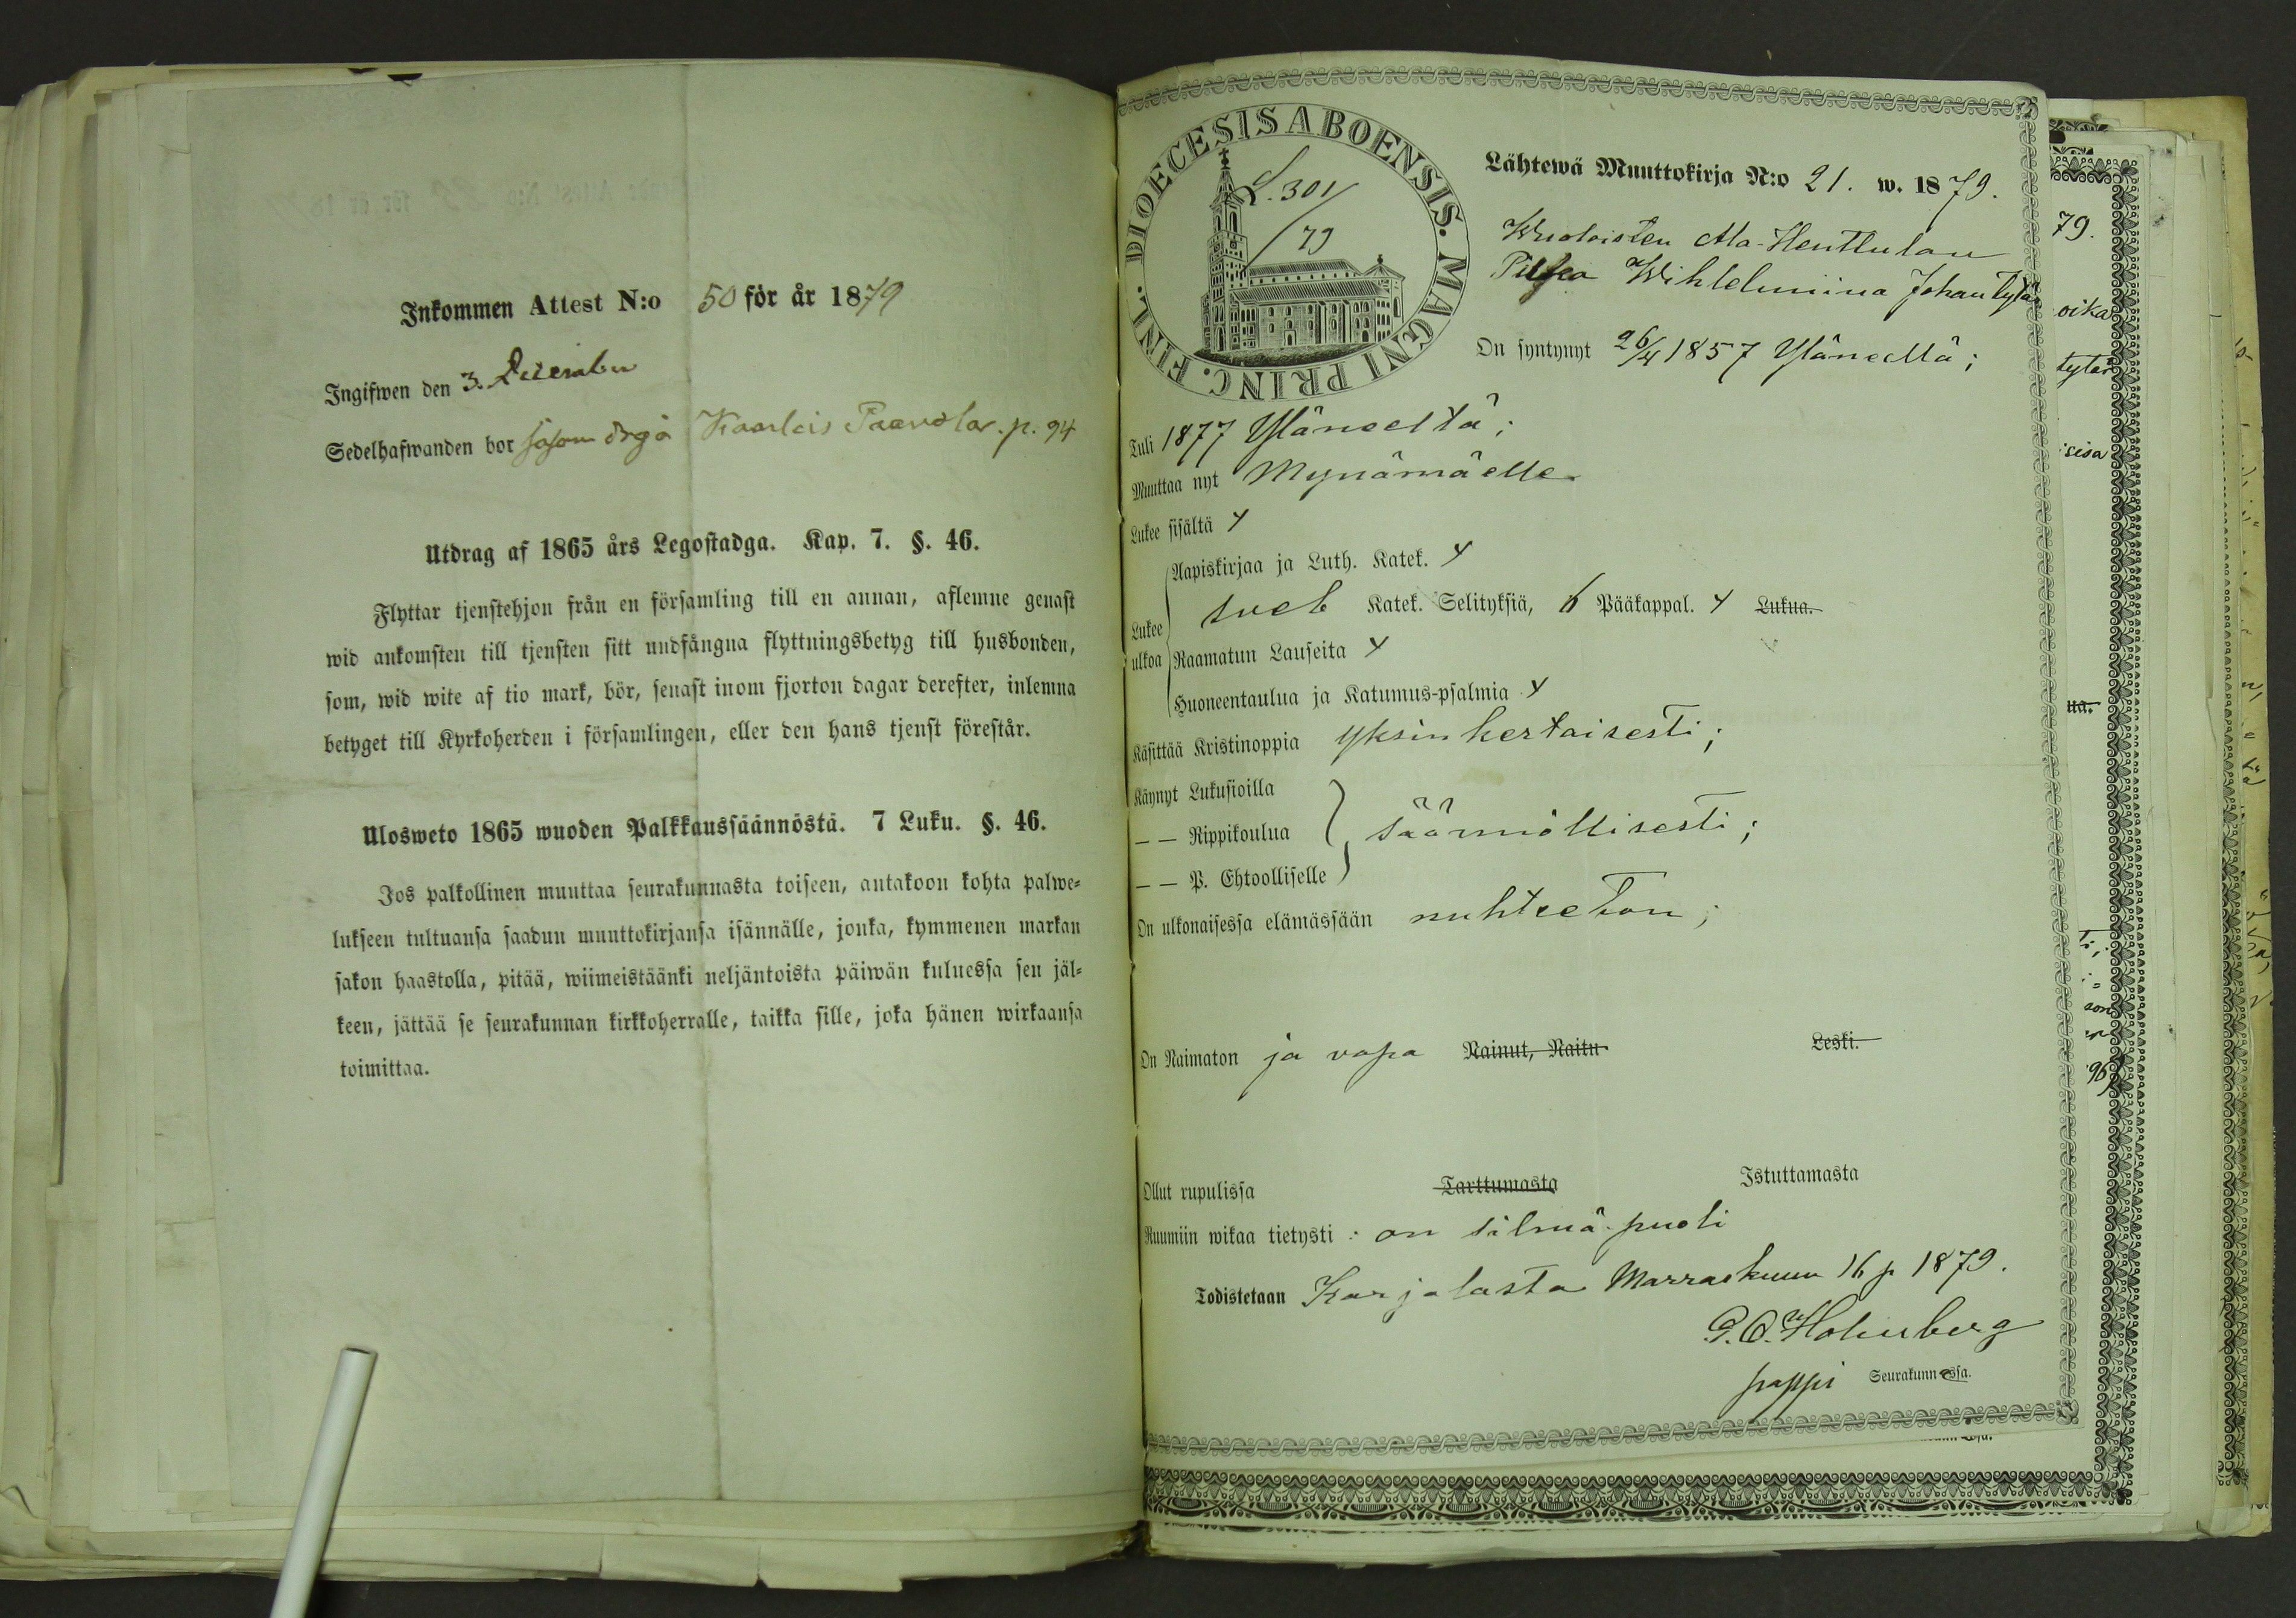 Inkommen Attest N:o 50 för år 1879
Ingifwen den 3. December
Sedelhafwanden bor såsom Kaarlois Paavola. p. 94
Utdrag af 1865 års Legostadga. Kap. 7. §. 46.
Flyttar tjenstehjon från en församling till en annan, aflemne genast
wid ankomsten till tjensten sitt undfångna flyttningsbetyg till husbonden,
som, wid wite af tio mark, bör, senast inom fjorton dagar derefter, inlemna
betyget till Kyrkoherden i församlingen, eller den hans tjenst förestår.
Ulosweto 1865 wuoden Palkkaussäännöstä. 7 Luku. §. 46.
Jos palkollinen muuttaa seurakunnasta toiseen, antakoon kohta palwe-
lukseen tultuansa saadun muuttokirjansa isännälle, jonka, kymmenen markan
sakon haastolla, pitää, wiimeistäänki neljäntoista päiwän kuluessa sen jäl-
keen, jättää se seurakunnan kirkkoherralle, taikka sille, joka hänen wirkaansa
toimittaa.
FINL. DIOECESIS ABOENSIS. MAGNI PRINC.
L. 301/79
Lähtewä Muuttokirja N:o 21. w. 1879.
Ala-Henttulan
Piika Wihlelmiina Johan tytär
On syntynyt 26/4 1857 Yläneellä;
Tuli 1877 Yläneeltä;
Muuttaa nyt Mynämäelle
Lukee sisältä 4
Lukee ulkoa
Aapiskirjaa ja Luth. Katek. 4
sveb Katek. Selityksiä, 6 Pääkappal. 4 Lukua.
Raamatun Lauseita 4
Huoneentaulua ja Katumus-psalmia 4
Käsittää Kristinoppia yksinkertaisesti;
Käynyt Lukusioilla
— — Rippikoulua säännöllisesti;
— — P. Ehtoolliselle
On ulkonaisessa elämässään nuhteeton;
On Naimaton ja vapa Nainut, Naitu Leski.
Ollut rupulissa Tarttumasta Istuttamasta
Ruumiin wikaa tietysti: on silmä-puoli
Todistetaan Karjalasta Marraskuun 16 p 1879.
G. O. Holmberg
pappi Seurakunnassa.
79.
oika
tytär
sisa
ua.